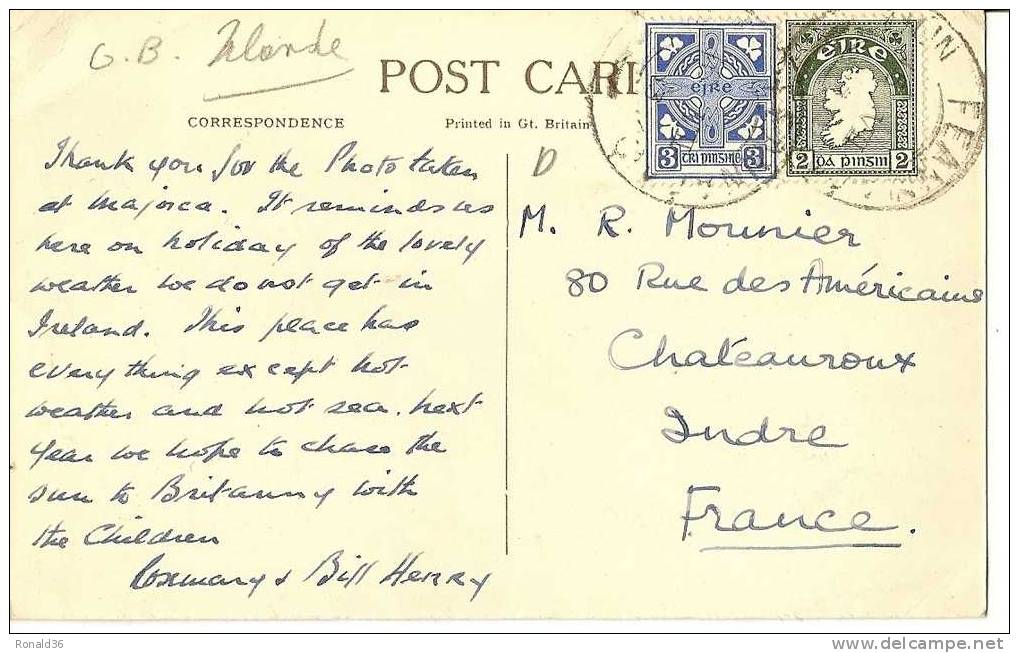 G.B. Irlande
POST CARD
CORRESPONDENCE
Printed in Gt. Britain
EIRE
3 TRÍ PINGINE 3
EIRE
2 DA PINGIN 2
D
Thank you for the Photo taken
at Majorca. It reminds us
here on holiday of the lovely
weather we do not get in
Ireland. This place has
everything except hot
weather and hot sea. Next
year we hope to chase the
sun to Britanny with
the Children
Rosemary & Bill Henry
M. R. Mounier
80 Rue des Américains
Chateauroux
Indre
France.
Ronald36
http://www.delcampe.net